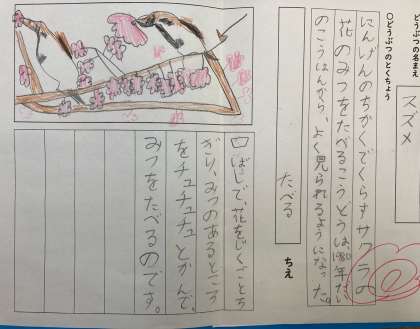 どうぶつの名まえ
スズメ
○どうぶつのとくちょう
にんげんのちかくでくらす サクラの
花のみつをたべるこうどうは、1980年だい
のこうはんから、よく見られるようになった。
たべる
ちえ
口ばしで、花をじくごとち
ぎり、みつのあるところ
をチュチュチュとかんで、
みつをたべるのです。